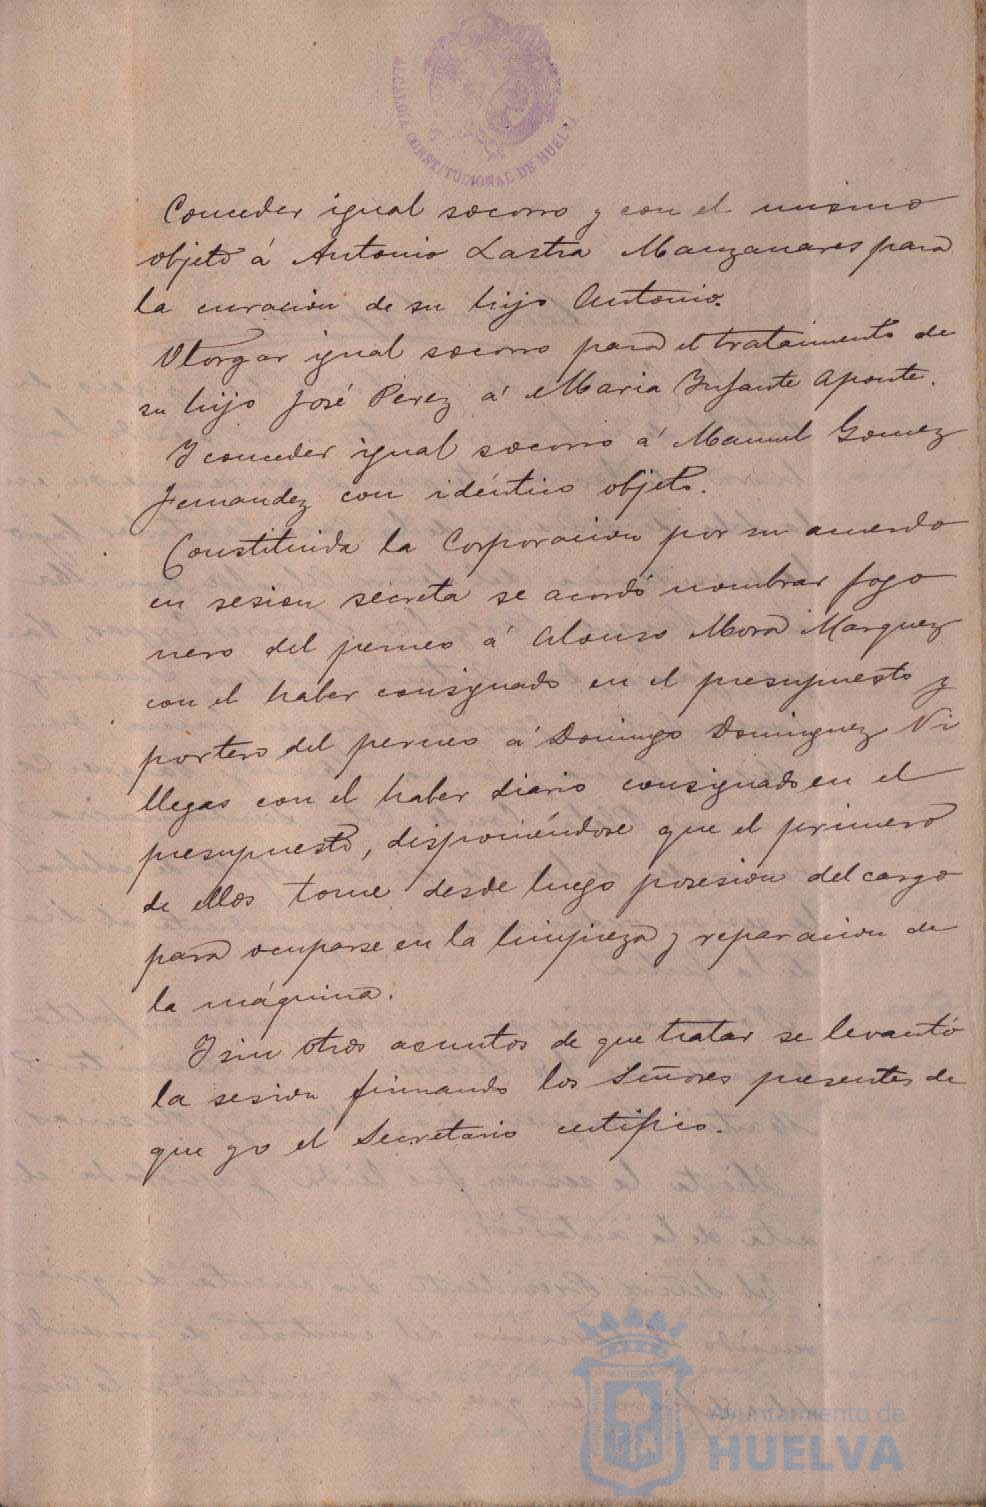 ALCALDIA CONSTITUCIONAL DE HUELVA
Conceder igual socorro y con el mismo
objeto á Antonio Lastra Manzanares para
la curacion de su hijo Antonio.
Otorgar igual socorro para el tratamiento de
su hijo José Perez á Maria Infante Aponte.
Y conceder igual socorro á Manuel Gomez
Fernandez con idéntico objeto.
Constituida la Corporacion por su acuerdo
en sesion secreta se acordó nombrar fogo
nero del perneo á Alonso Mora Marquez
con el haber consignado en el presupuesto y
portero del perneo á Domingo Dominguez Vi
llegas con el haber diario consignado en el
presupuesto, disponiéndose que el primero
de ellos tome desde luego posesion del cargo
para ocuparse en la limpieza y reparacion de
la máquina.
Y sin otros asuntos de que tratar se levantó
la sesion firmando los Señores presentes de
que yo el Secretario certifico.
Ayuntamiento de
HUELVA